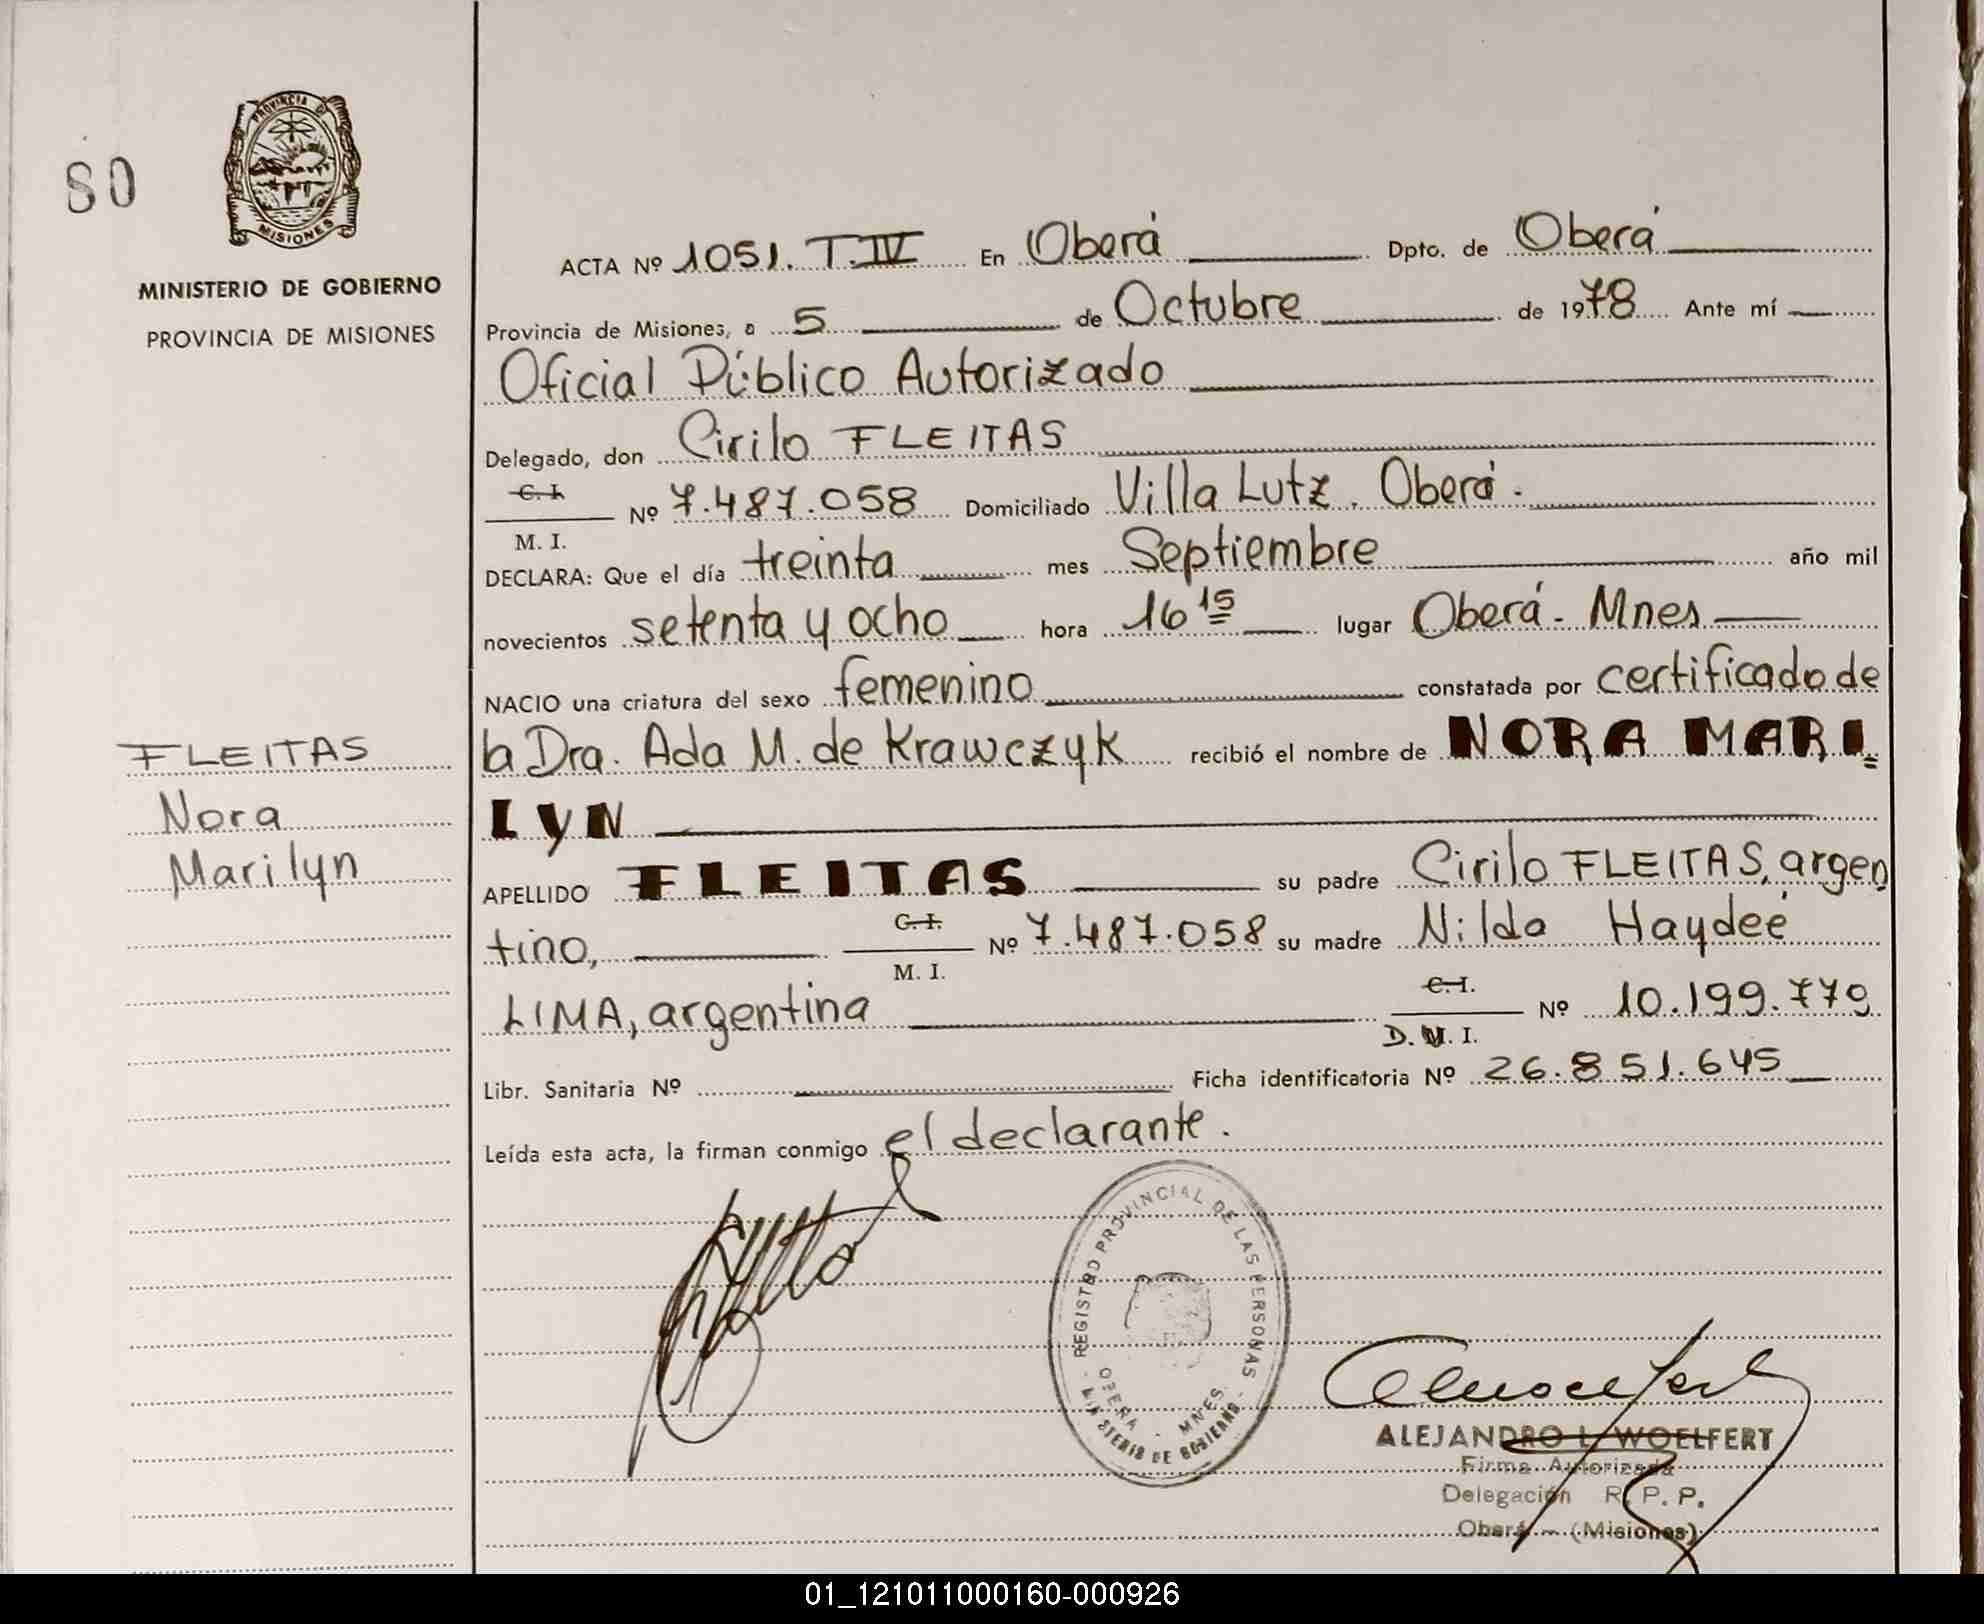 80
PROVINCIA DE
MISIONES
MINISTERIO DE GOBIERNO
PROVINCIA DE MISIONES
FLEITAS
Nora
Marilyn
ACTA Nº 1051. T.IV En Oberá Dpto. de Oberá
Provincia de Misiones, a 5 de Octubre de 1978 Ante mí
Oficial Público Autorizado
Delegado, don Cirilo FLEITAS
C. I.
Nº 7.487.058 Domiciliado Villa Lutz. Oberá.
M. I.
DECLARA: Que el día treinta mes Septiembre año mil
novecientos setenta y ocho hora 16 15 lugar Oberá. Mnes
NACIO una criatura del sexo femenino constatada por certificado de
la Dra. Ada M. de Krawczyk recibió el nombre de NORA MARI=
LYN
APELLIDO FLEITAS su padre Cirilo FLEITAS, argen
C. I.
tino, Nº 7.487.058 su madre Nilda Haydeé
M. I.
C. I.
LIMA, argentina Nº 10.199.779
D. N. I.
Libr. Sanitaria Nº Ficha identificatoria Nº 26.851.645
Leída esta acta, la firman conmigo el declarante.
REGISTRO PROVINCIAL DE LAS PERSONAS
OBERA - MNES.
MINISTERIO DE GOBIERNO
ALEJANDRO L. WOELFERT
Firma Autorizada
Delegación R. P. P.
Oberá - (Misiones)
01_121011000160-000926